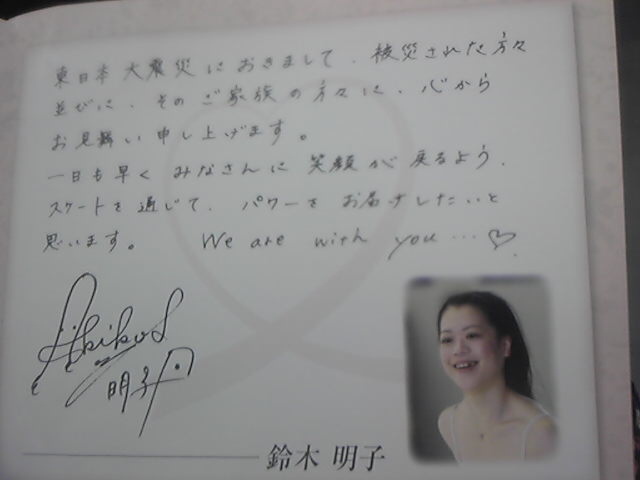 東日本大震災におきまして、被災された方々
並びに、そのご家族の方々に、心から
お見舞い申し上げます。
一日も早くみなさんに笑顔が戻るよう、
スケートを通じて、パワーをお届けしたいと
思います。 We are with you…♡.
Akiko S
明子
鈴木 明子